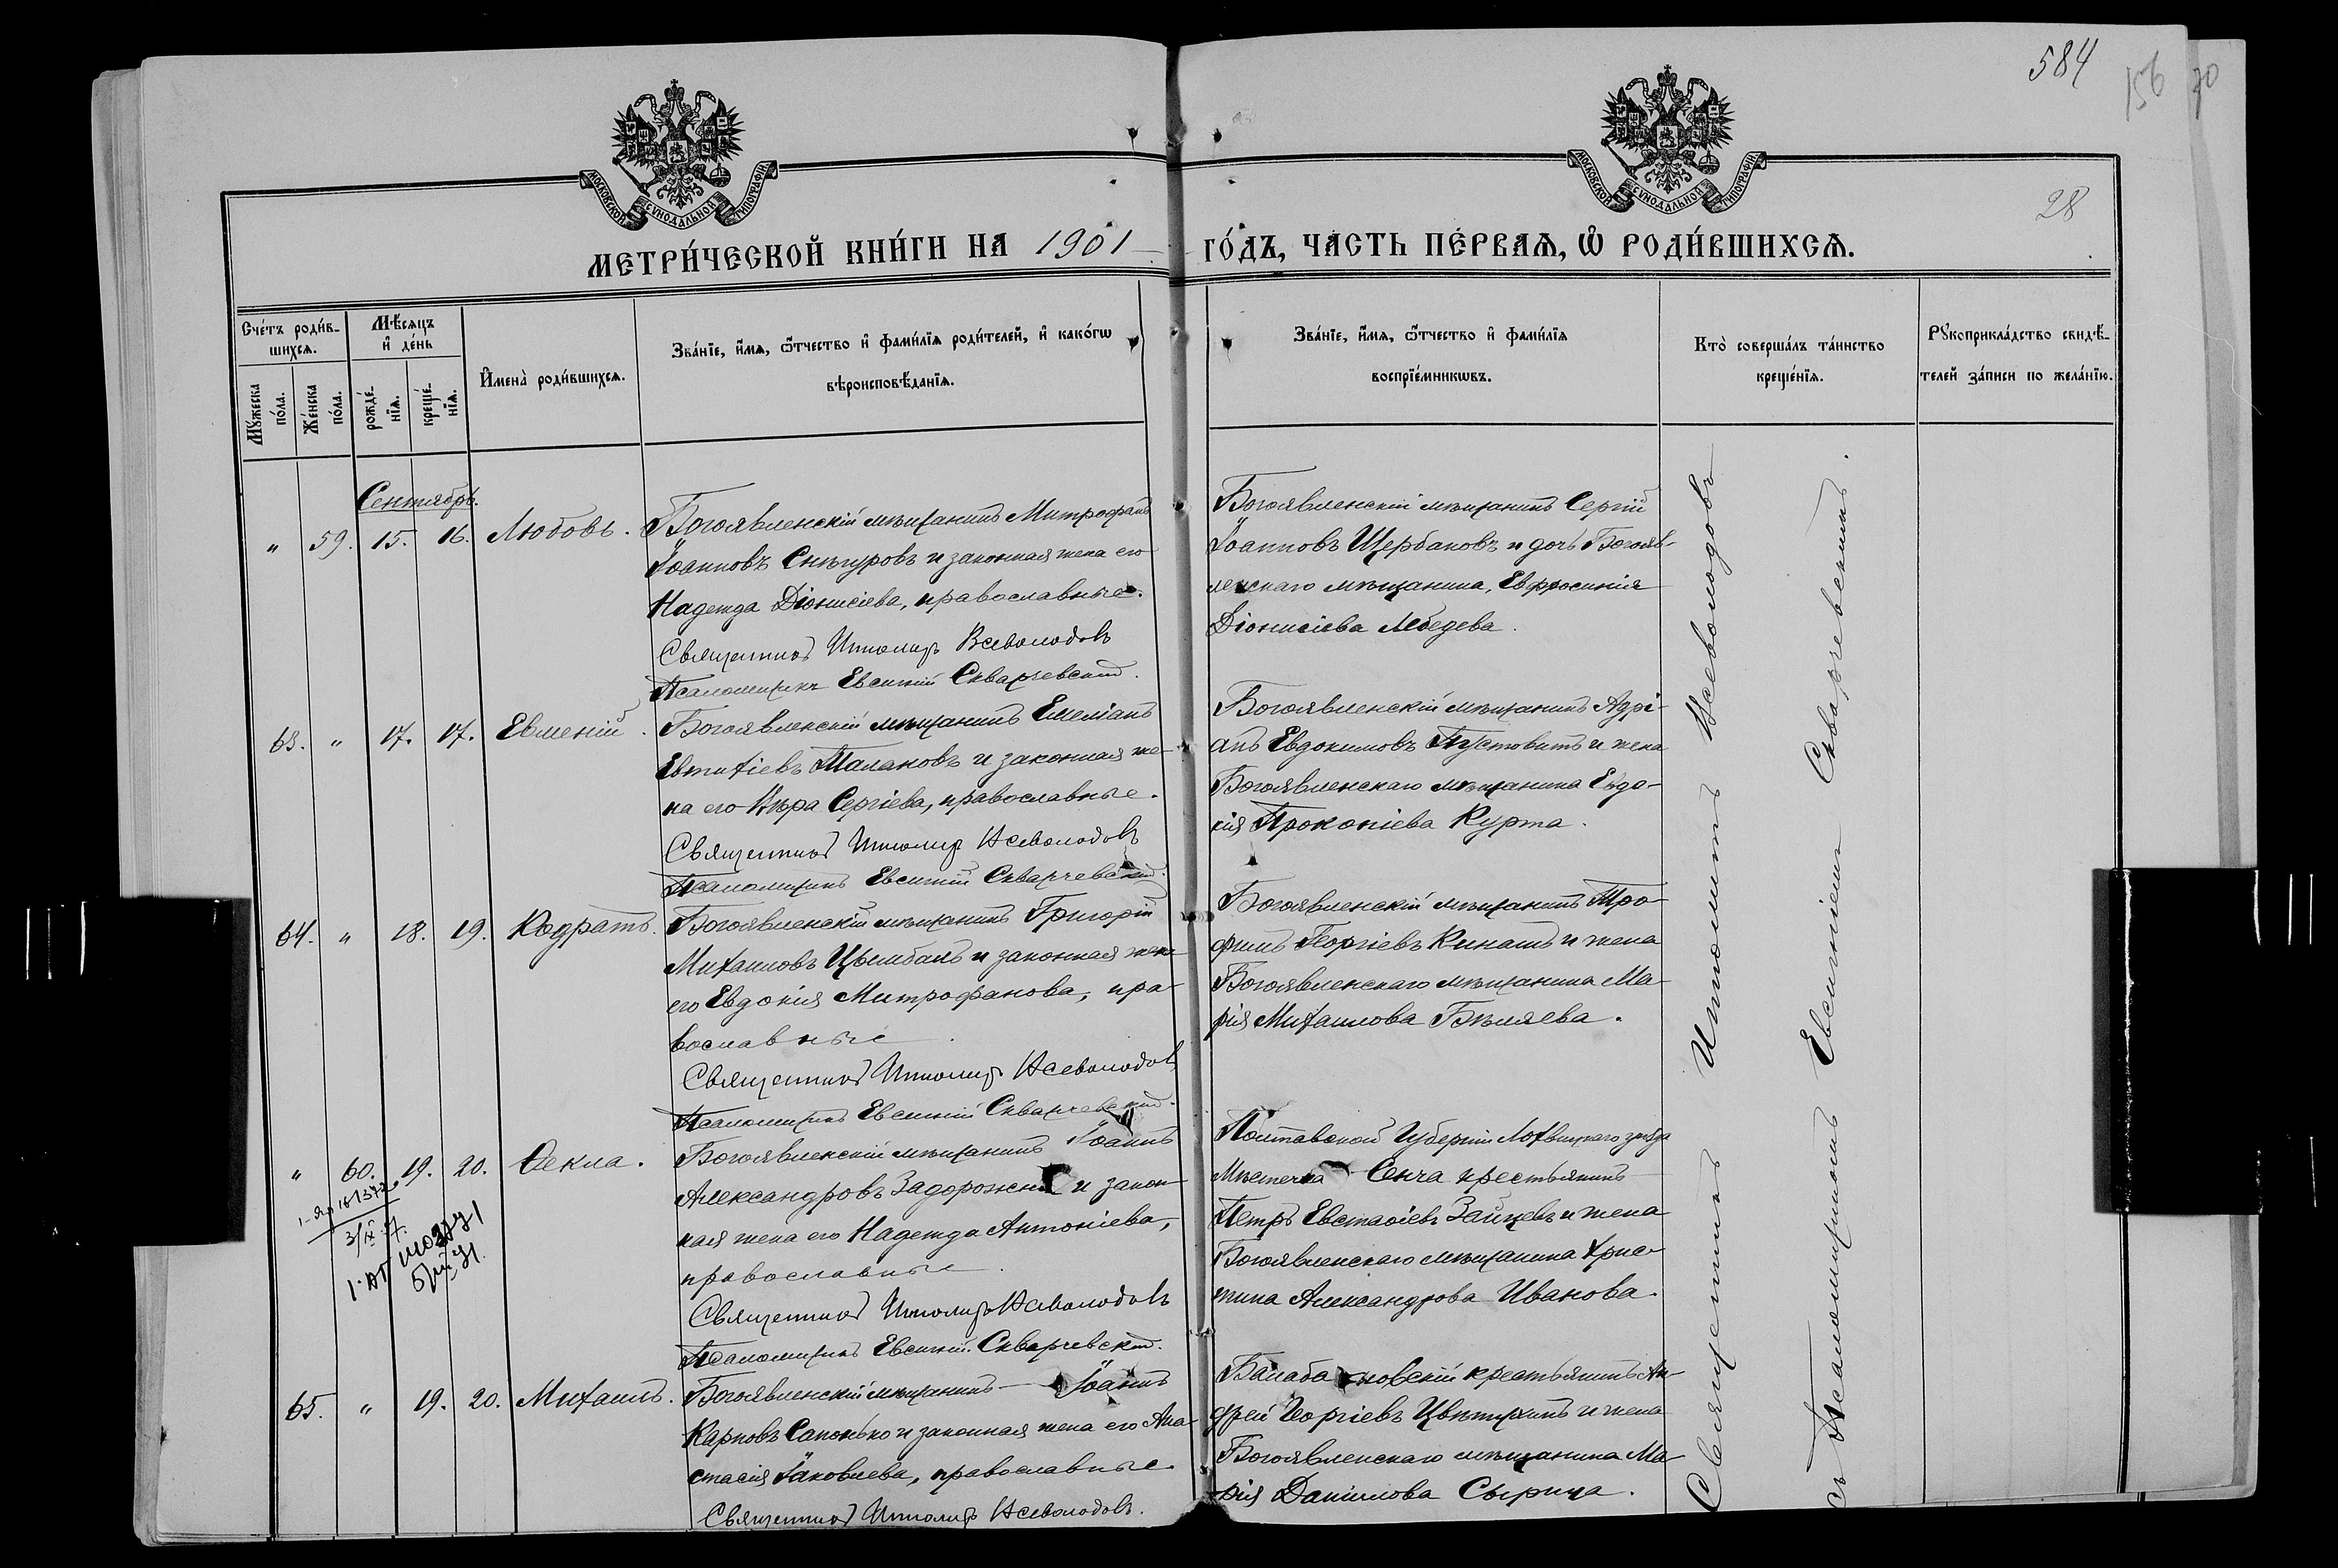 584
156
70
28
МОСКОВСКОЙ СѴНОДАЛЬНОЙ ТИПОГРАФІИ
МОСКОВСКОЙ СѴНОДАЛЬНОЙ ТИПОГРАФІИ
МЕТРИ́ЧЕСКОЙ КНИ́ГИ НА 1901 ГО́ДЪ, ЧА́СТЬ ПЕ́РВАѦ, Ѡ҆ РОДИ́ВШИХСѦ.
Сче́тъ роди́в-
шихсѧ.
Мꙋ́жеска по́ла.
Же́нска по́ла.
Мѣ́сѧцъ и҆ де́нь
рожде́-нїѧ.
креще́-нїѧ.
И҆мена̀ роди́вшихсѧ.
Зва́нїе, и҆́мѧ, ѻ҆́тчество и҆ фами́лїѧ роди́телей, и҆ како́гѡ
вѣроисповѣ́данїѧ.
Зва́нїе, и҆́мѧ, ѻ҆́тчество и҆ фами́лїѧ
воспрїе́мникѡвъ.
Кто̀ соверша́лъ та́инство
креще́нїѧ.
Рꙋкоприкла́дство свидѣ́-
телей за́писи по жела́нїю.
Сентябрь.
" 59. 15. 16. Любовь.
Богоявленскій мѣщанинъ Митрофанъ
Іоанновъ Снѣгуровъ и законная жена его
Надежда Діонисіева, православные.
Священникъ Ипполитъ Всеволодовъ
Псаломщикъ Евсигній Скварчевскій.
Богоявленскій мѣщанинъ Сергій
Іоанновъ Щербаковъ и дочь Богояв-
ленскаго мѣщанина, Евфросинія
Діонисіева Лебедева.
63. " 17. 17. Евменій.
Богоявленскій мѣщанинъ Емеліанъ
Евтихіевъ Малаковъ и законная же-
на его Вѣра Сергіева, православные.
Священникъ Ипполитъ Всеволодовъ
Псаломщикъ Евсигній Скварчевскій.
Богоявленскій мѣщанинъ Адрі-
анъ Евдокимовъ Пустовитъ и жена
Богоявленскаго мѣщанина Евдо-
кія Прокопіева Курта.
64. " 18. 19. Кодратъ.
Богоявленскій мѣщанинъ Григорій
Михаиловъ Цымбалъ и законная жена
его Евдокія Митрофанова, пра-
вославные.
Священникъ Ипполитъ Всеволодовъ
Псаломщикъ Евсигній Скварчевскій.
Богоявленскій мѣщанинъ Тро-
фимъ Георгіевъ Кинашъ и жена
Богоявленскаго мѣщанина Ма-
рія Михаилова Бѣляева.
" 60. 19. 20. Ѳекла.
Богоявленскій мѣщанинъ Іоаннъ
Александровъ Задорожній и закон-
ная жена его Надежда Антоніева,
православные.
Священникъ Ипполитъ Всеволодовъ
Псаломщикъ Евсигній Скварчевскій.
Полтавской Губерніи Лохвицкаго уѣзда
Мѣстечка Сенча крестьянинъ
Петръ Евстафіевъ Зайцевъ и жена
Богоявленскаго мѣщанина Хрис-
тина Александрова Иванова.
65. " 19. 20. Михаилъ.
Богоявленскій мѣщанинъ — Іоаннъ
Карповъ Сапонько и законная жена его Ана-
стасія Іаковлева, православные.
Священникъ Ипполитъ Всеволодовъ.
Балабановскій крестьянинъ Ан-
дрей Георгіевъ Цвѣтухинъ и жена
Богоявленскаго мѣщанина Ма-
рія Даніилова Сырица.
Священникъ Ипполитъ Всеволодовъ
съ Псаломщикомъ Евсигніемъ Скварчевскимъ.